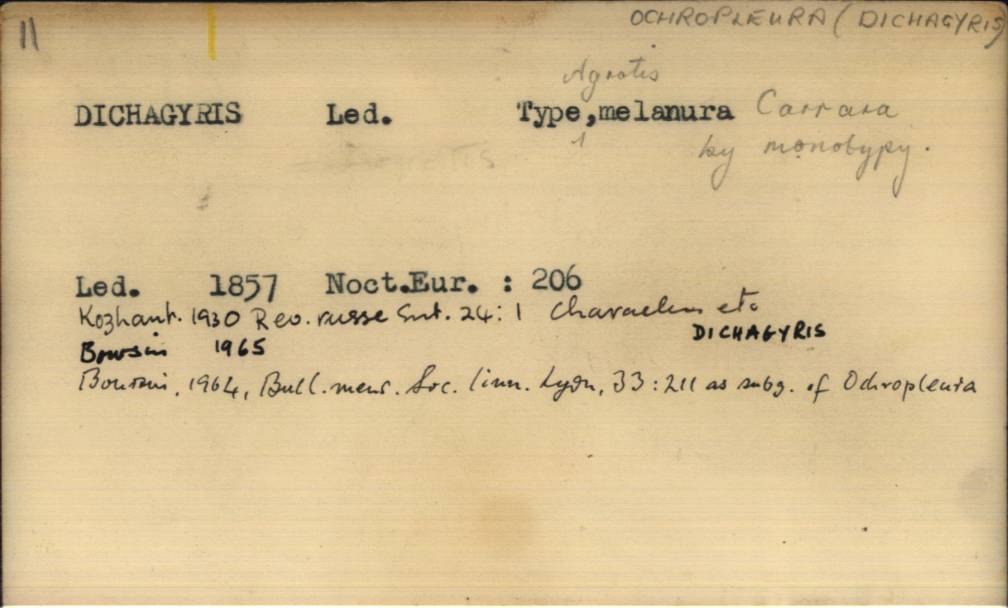 11
OCHROPLEURA (DICHAGYRIS)
Agrotis
DICHAGYRIS Led. Type, melanura
by monotypy.
Led. 1857 Noct.Eur. : 206
Kozhant. 1930 Rev. russe Ent. 24: 1 Characters etc
Boursin 1965 DICHAGYRIS
Boursin, 1964, Bull. mens. Soc. linn. Lyon, 33: 211 as subg. of Ochropleura